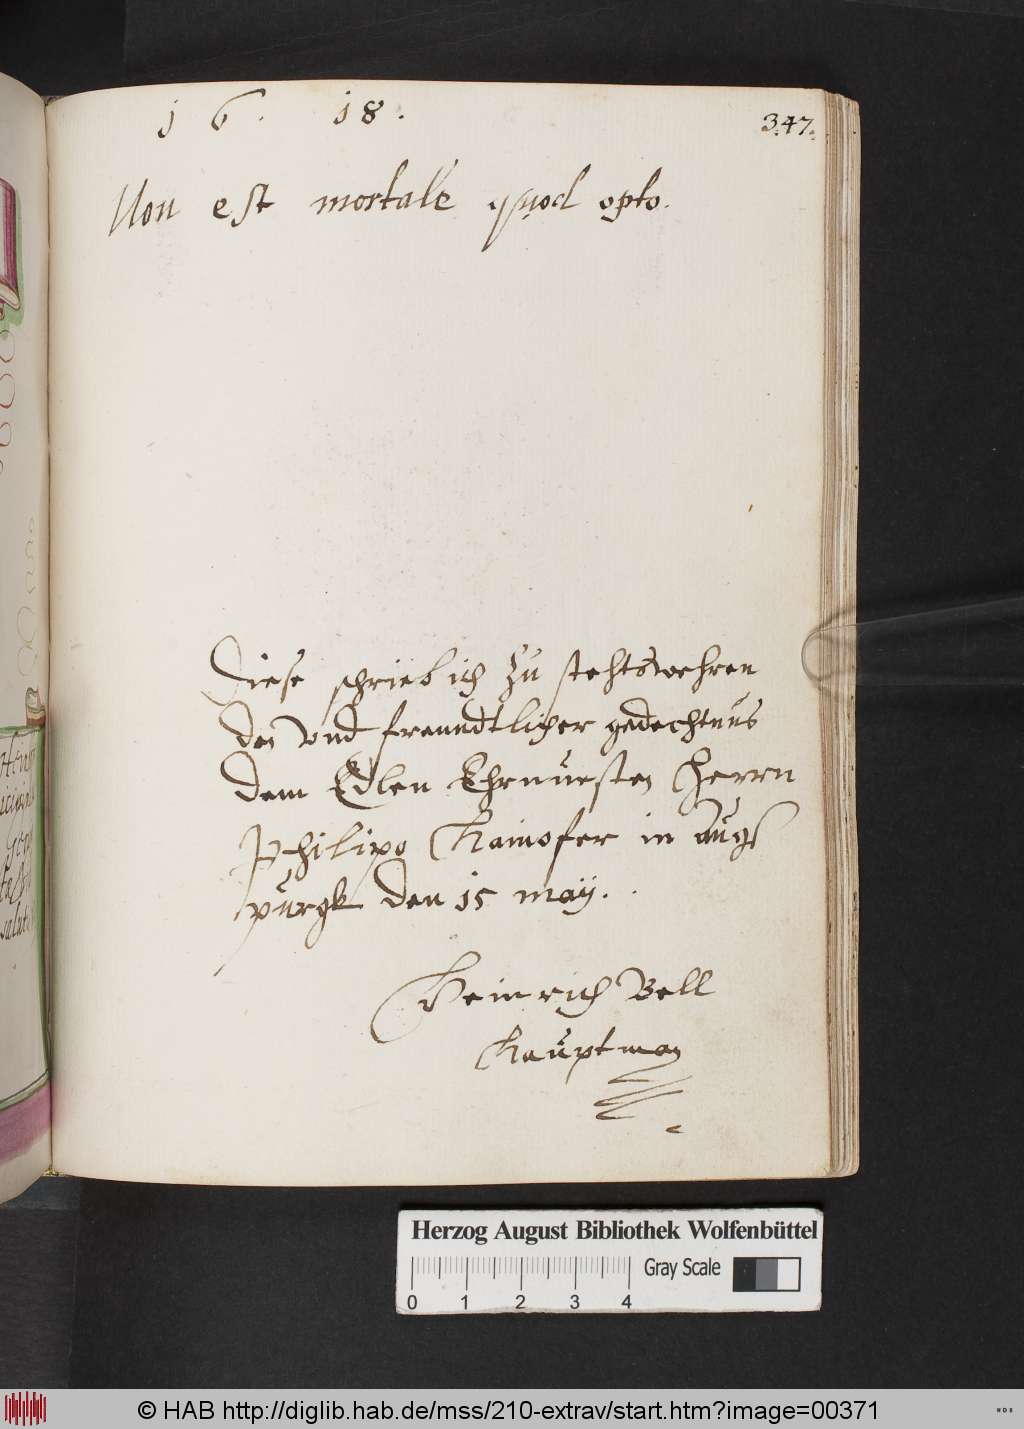 16. 18.
347.
Non est mortale quod opto.
Diese schrieb ich zu stehtswehren
der Vnd freundtlicher gedechtnus
dem Edlen Ehrnuesten Herrn
Philipo Hainofer in Augs
purgk den 15 may.
Heinrich Bell
Hauptman
Herzog August Bibliothek Wolfenbüttel
Gray Scale
0 1 2 3 4
© HAB http://diglib.hab.de/mss/210-extrav/start.htm?image=00371